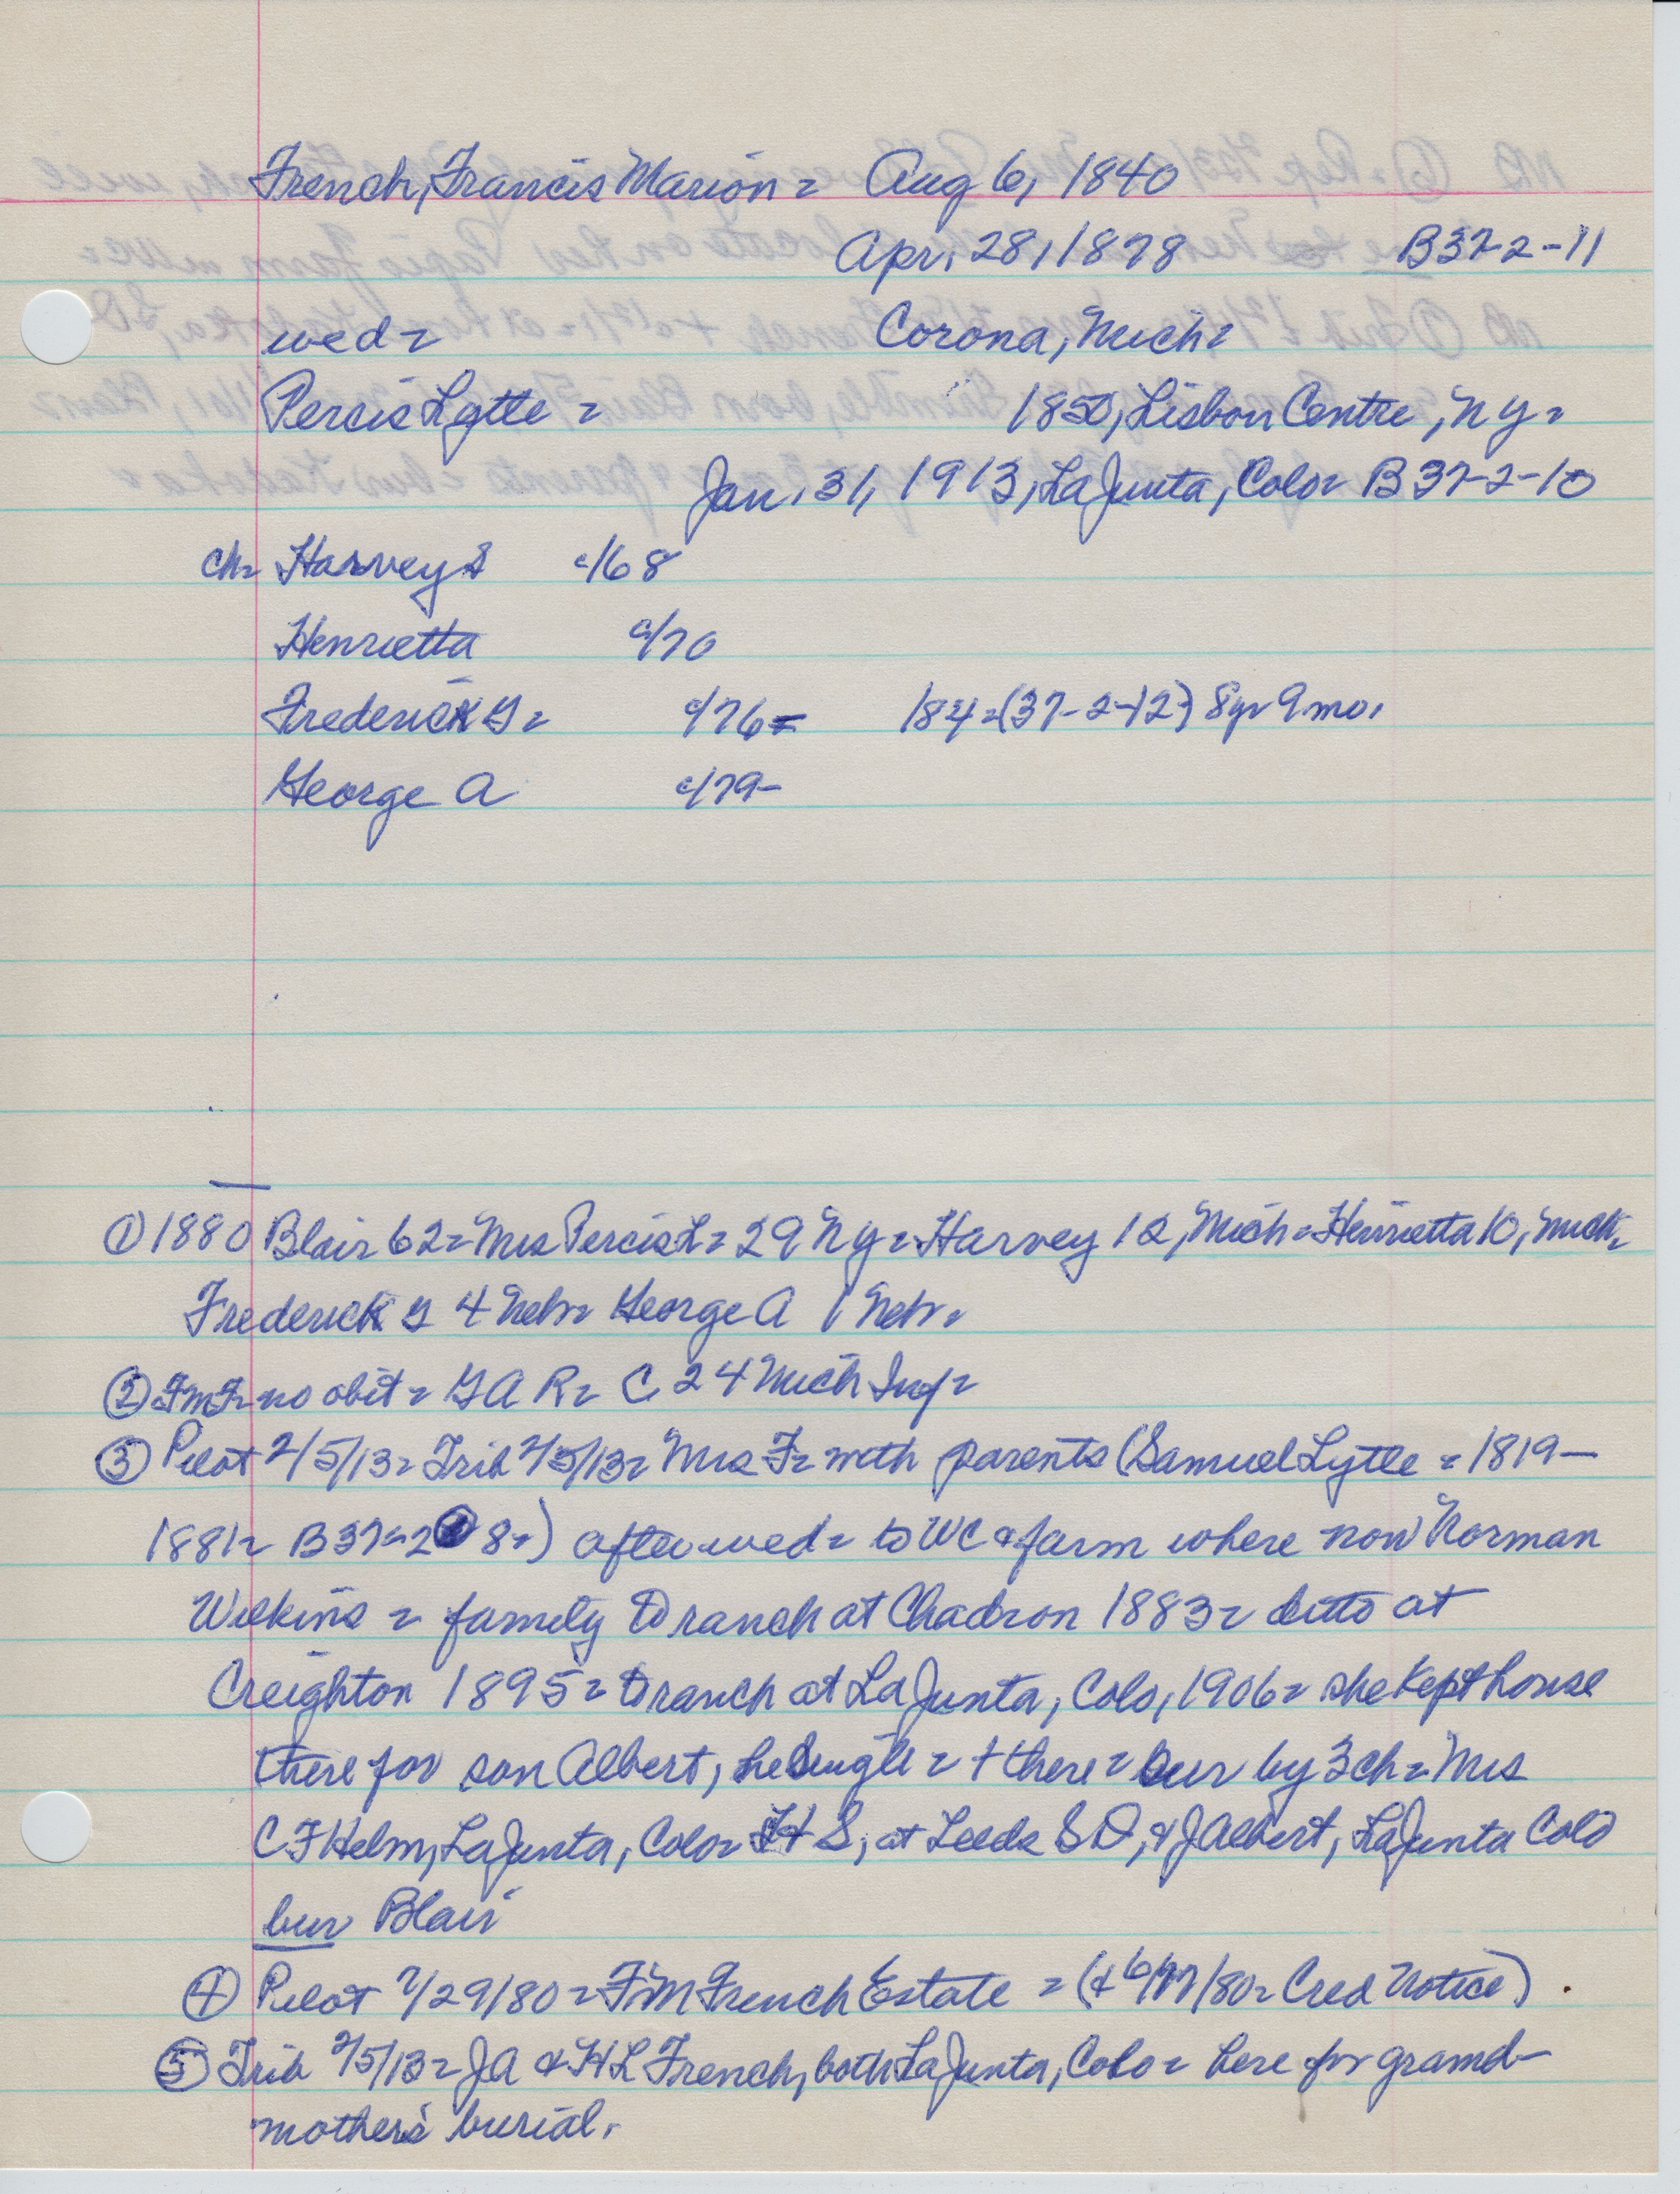 French, Francis Marion = Aug 6, 1840
Apr. 28, 1878 B37-2-11
wed = Corona, Mich =
Percis Lytle = 1850, Lisbon Centre, NY =
Jan. 31, 1913, LaJunta, Colo = B 37-2-10
ch = Harvey S c/68
Henrietta c/70
Frederick G = c/76 = 184 = (37-2-12) 8 yr 9 mo.
George A c/79-
① 1880 Blair 62 = Mrs Percis L = 29 NY = Harvey 12, Mich = Henrietta 10, Mich =
Frederick G 4 Nebr = George A 1 Nebr =
② FMF = no obit = GAR = C 24 Mich Inf =
③ Pilot 2/5/13 = Trib 2/5/13 = Mrs F = with parents (Samuel Lytle = 1819-
1881 = B37-2 8 =) after wed = to WC & farm where now Norman
Wilkins = family to ranch at Chadron 1883 = ditto at
Creighton 1895 = to ranch at LaJunta, Colo, 1906 = she kept house
there for son Albert, he single = + there = sur by 3 ch = Mrs
C F Helm, LaJunta, Colo = H S, at Leeds S D, & J Albert, LaJunta Colo
bur Blair
④ Pilot 7/29/80 = F M French Estate = (& 6/17/80 = Cred Notice).
⑤ Trib 2/5/13 = JA & HL French, both LaJunta, Colo = here for grand-
mother's burial.